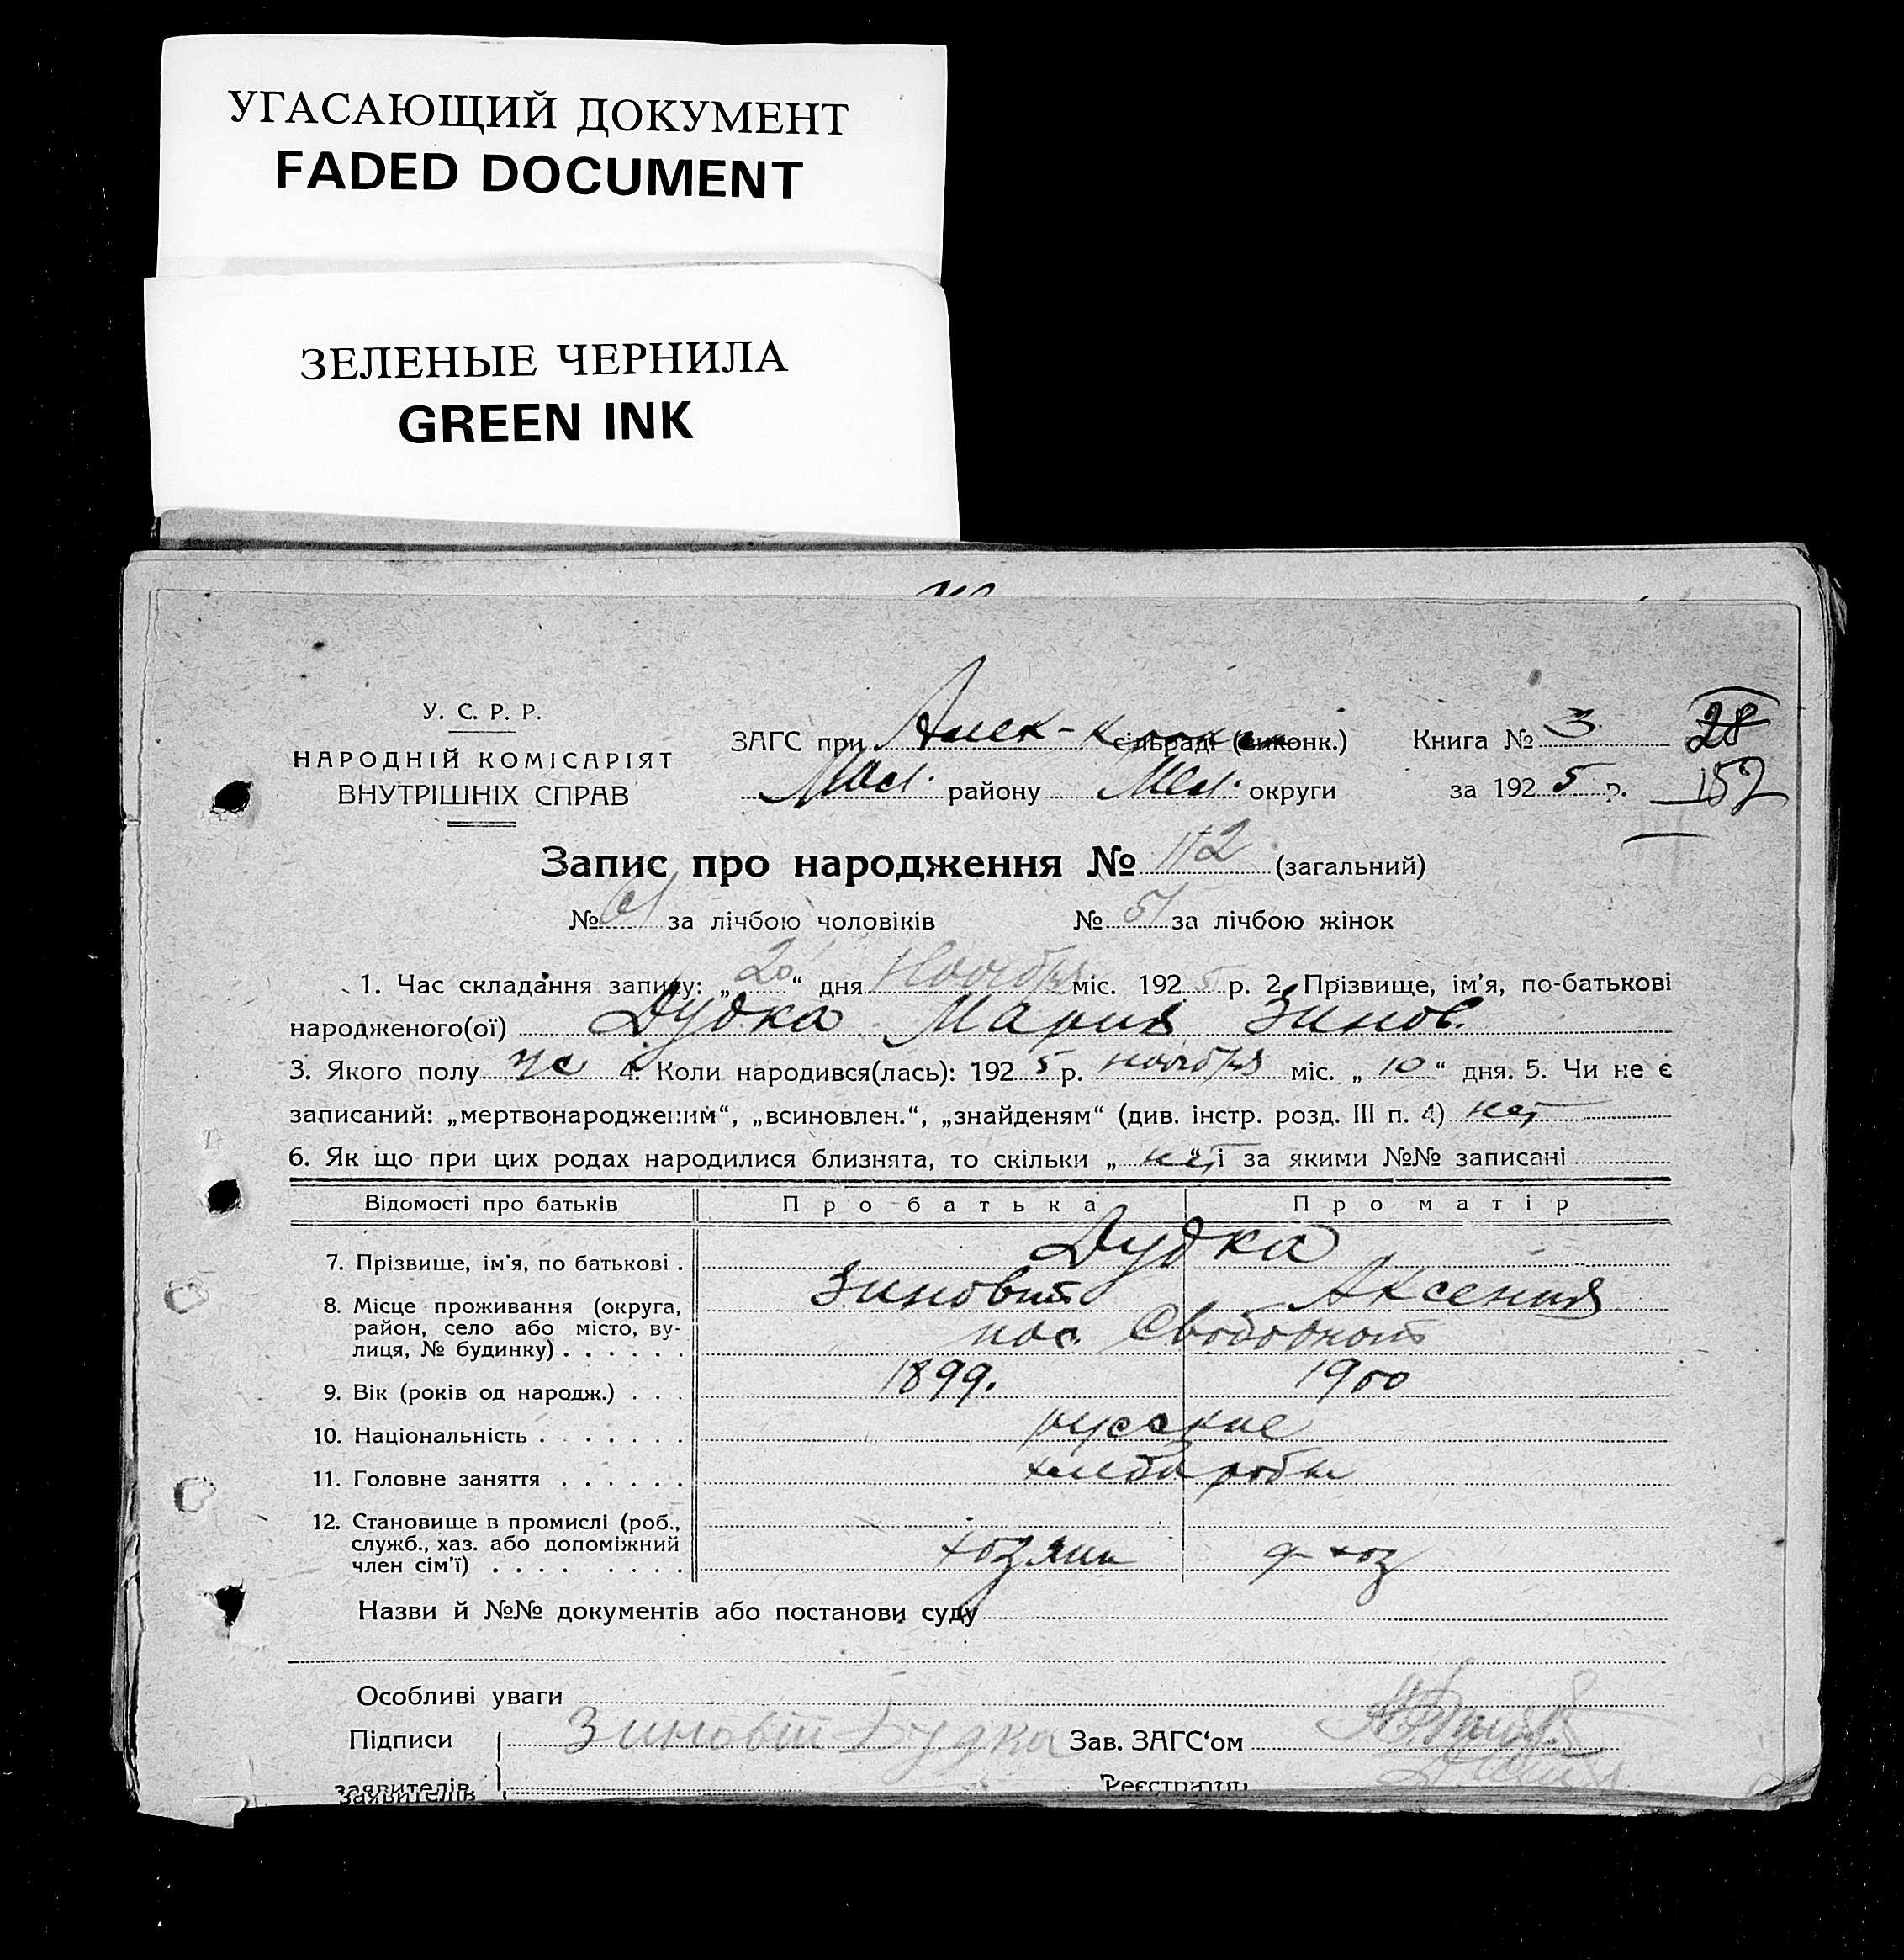 УГАСАЮЩИЙ ДОКУМЕНТ
FADED DOCUMENT
ЗЕЛЕНЫЕ ЧЕРНИЛА
GREEN INK
У. С. Р. Р.
НАРОДНІЙ КОМІСАРІЯТ
ВНУТРІШНІХ СПРАВ
ЗАГС при Алек- сільраді (виконк.)
району округи
Книга № 3
за 1925 р.
28
152
Запис про народження № 112 (загальний)
№ 61 за лічбою чоловіків № 51 за лічбою жінок
1. Час складання запису: „20“ дня Ноября міс. 1925 р. 2. Прізвище, ім'я, по-батькові
народженого(ої) Дудка Мария Зинов.
3. Якого полу ж 4. Коли народився(лась): 1925 р. ноября міс. „10“ дня. 5. Чи не є
записаний: „мертвонародженим“, „всиновлен.“, „знайденям“ (див. інстр. розд. III п. 4) нет
6. Як що при цих родах народилися близнята, то скільки „нет“ і за якими №№ записані
Відомості про батьків Про батька Про матір
7. Прізвище, ім'я, по батькові . Дудка
Зиновий Аксения
8. Місце проживання (округа,
район, село або місто, ву-
лиця, № будинку) . . . . . . пос. Свободной
9. Вік (років од народж.) . . . 1899. 1900
10. Національність . . . . . . . русские
11. Головне заняття . . . . . . хлеборобы
12. Становище в промислі (роб.,
служб., хаз. або допоміжний
член сім'ї) . . . . . . . . хозяин хоз
Назви й №№ документів або постанови суду
Особливі уваги
Підписи Зиновій Дудка Зав. ЗАГС'ом
заявителів Реєстратор